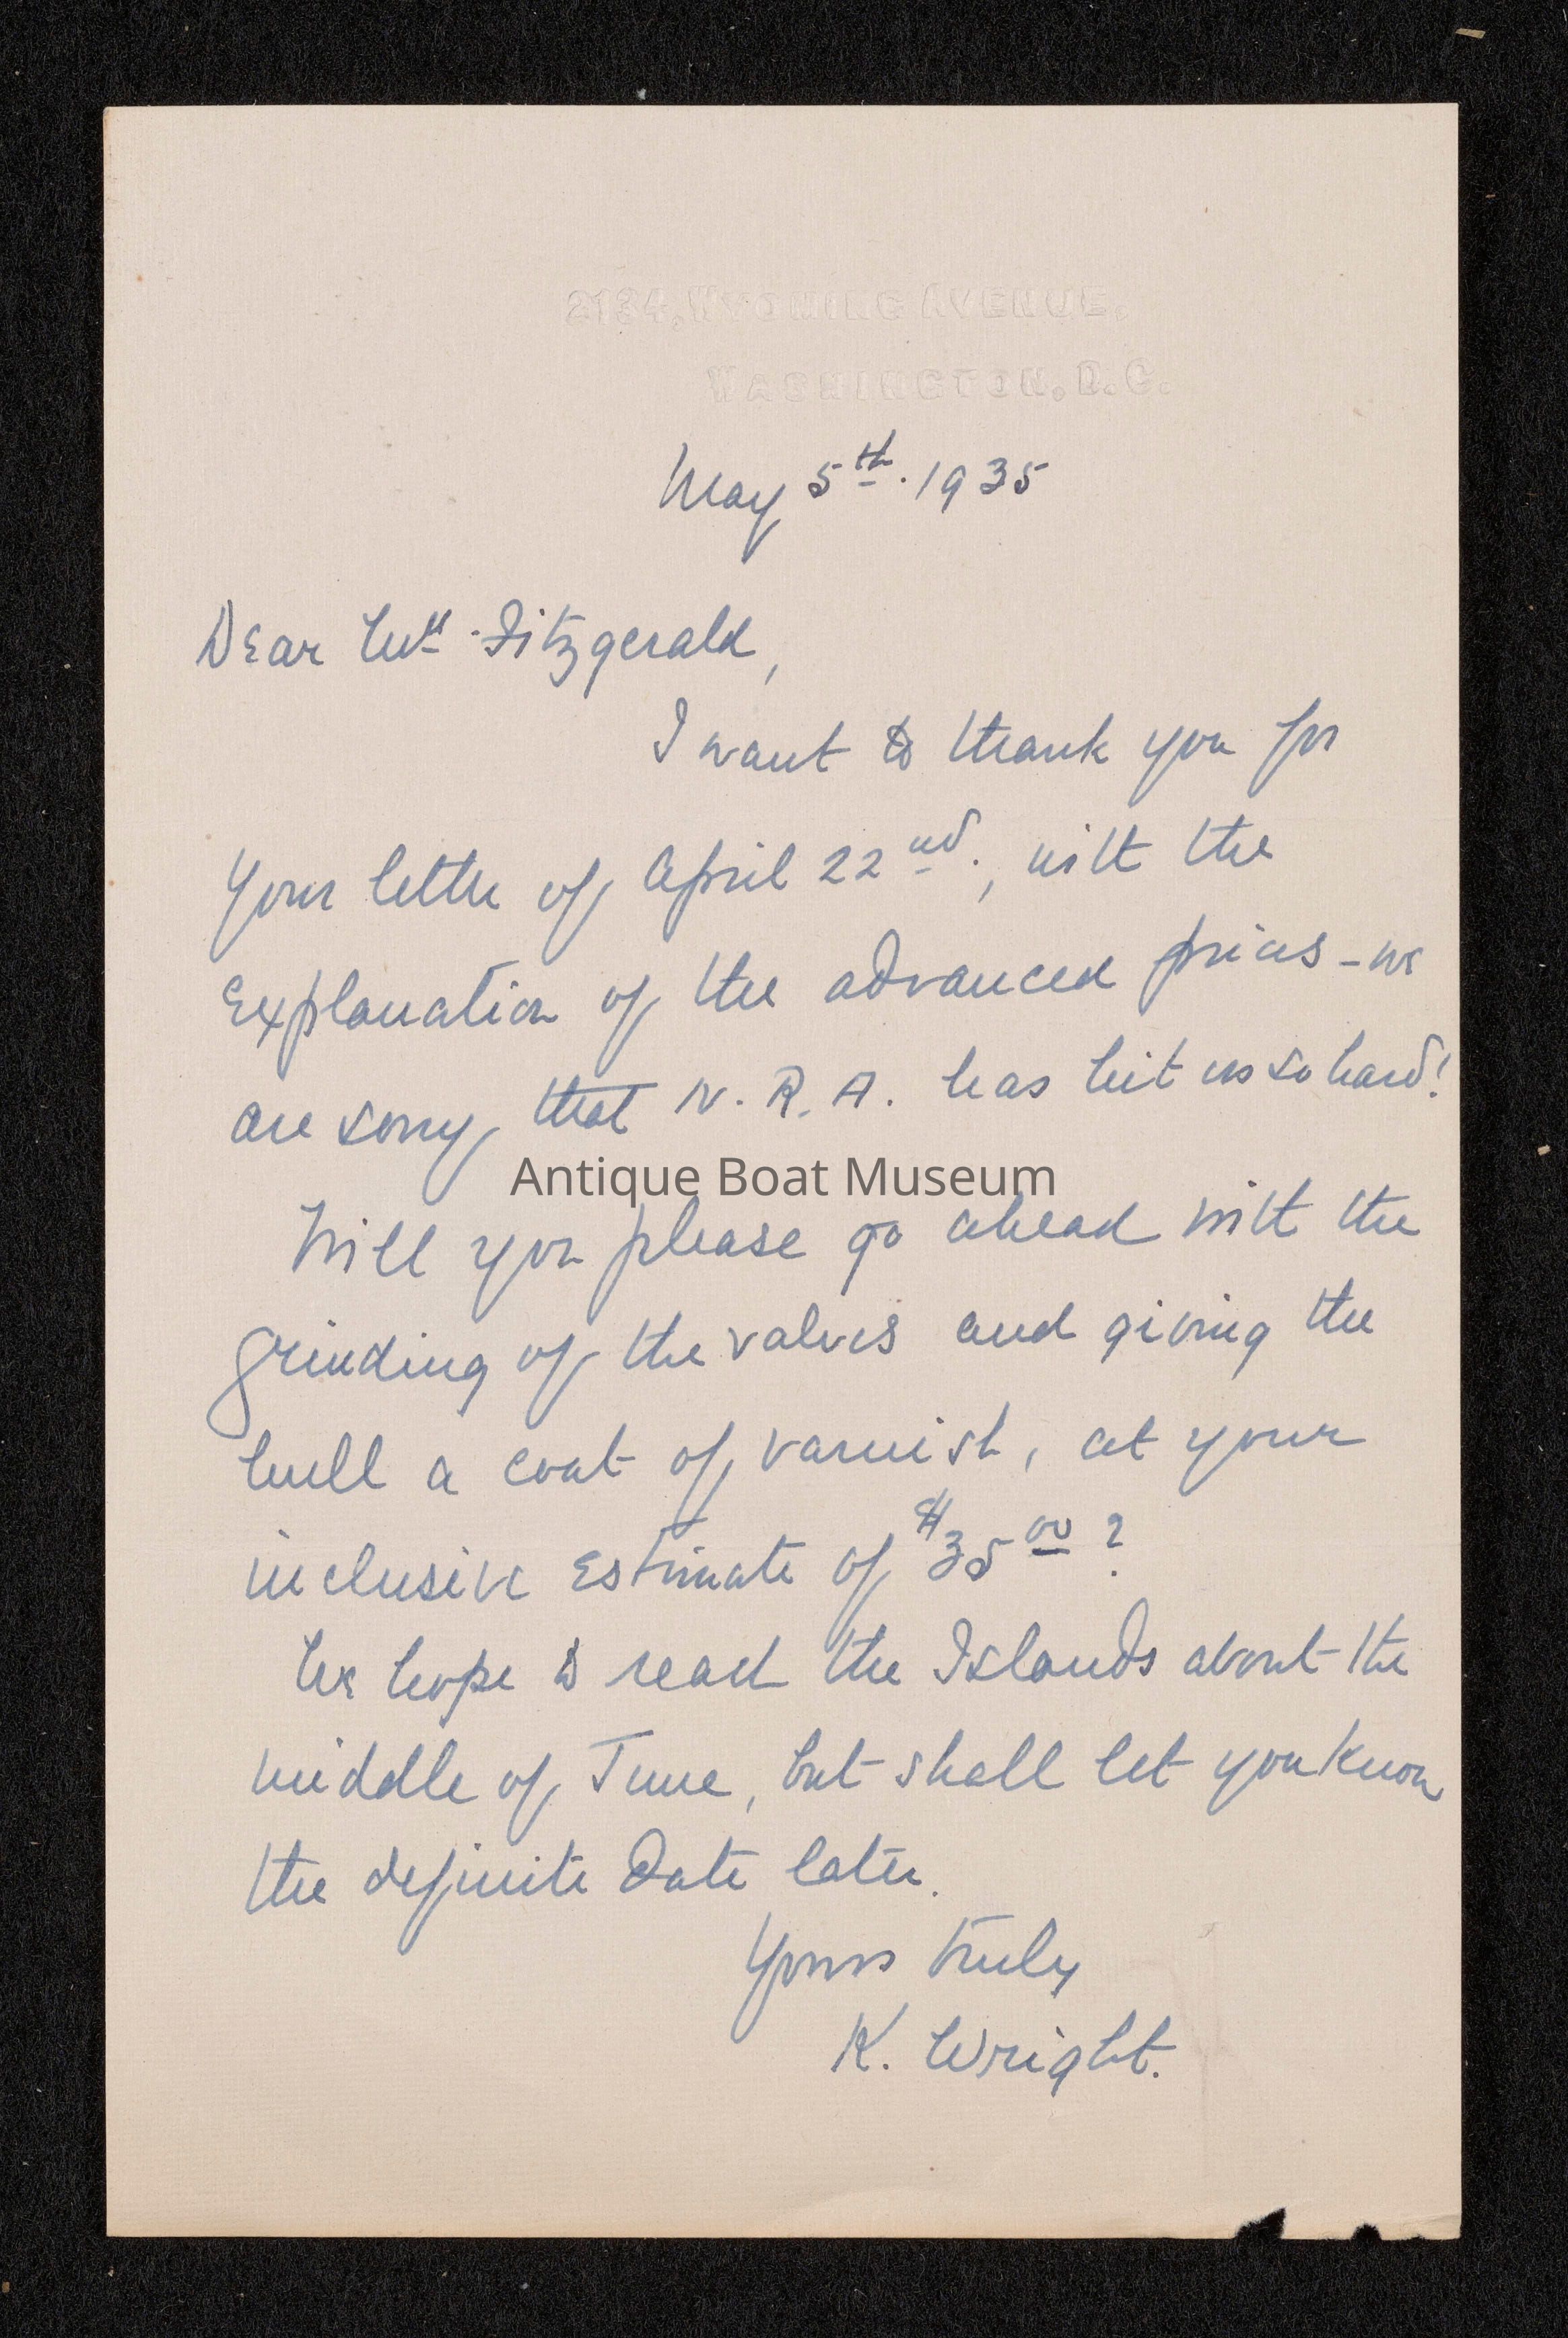 2134, WYOMING AVENUE,
WASHINGTON, D.C.
May 5th. 1935
Dear Mr. Fitzgerald,
I want to thank you for
your letter of April 22nd., with the
explanation of the advanced prices - we
are sorry that N. R. A. has hit us so hard!
Antique Boat Museum
Will you please go ahead with the
grinding of the valves and giving the
hull a coat of varnish, at your
inclusive estimate of $35 00 ?
We hope to reach the Islands about the
middle of June, but shall let you know
the definite date later.
Yours truly
K. Wright.